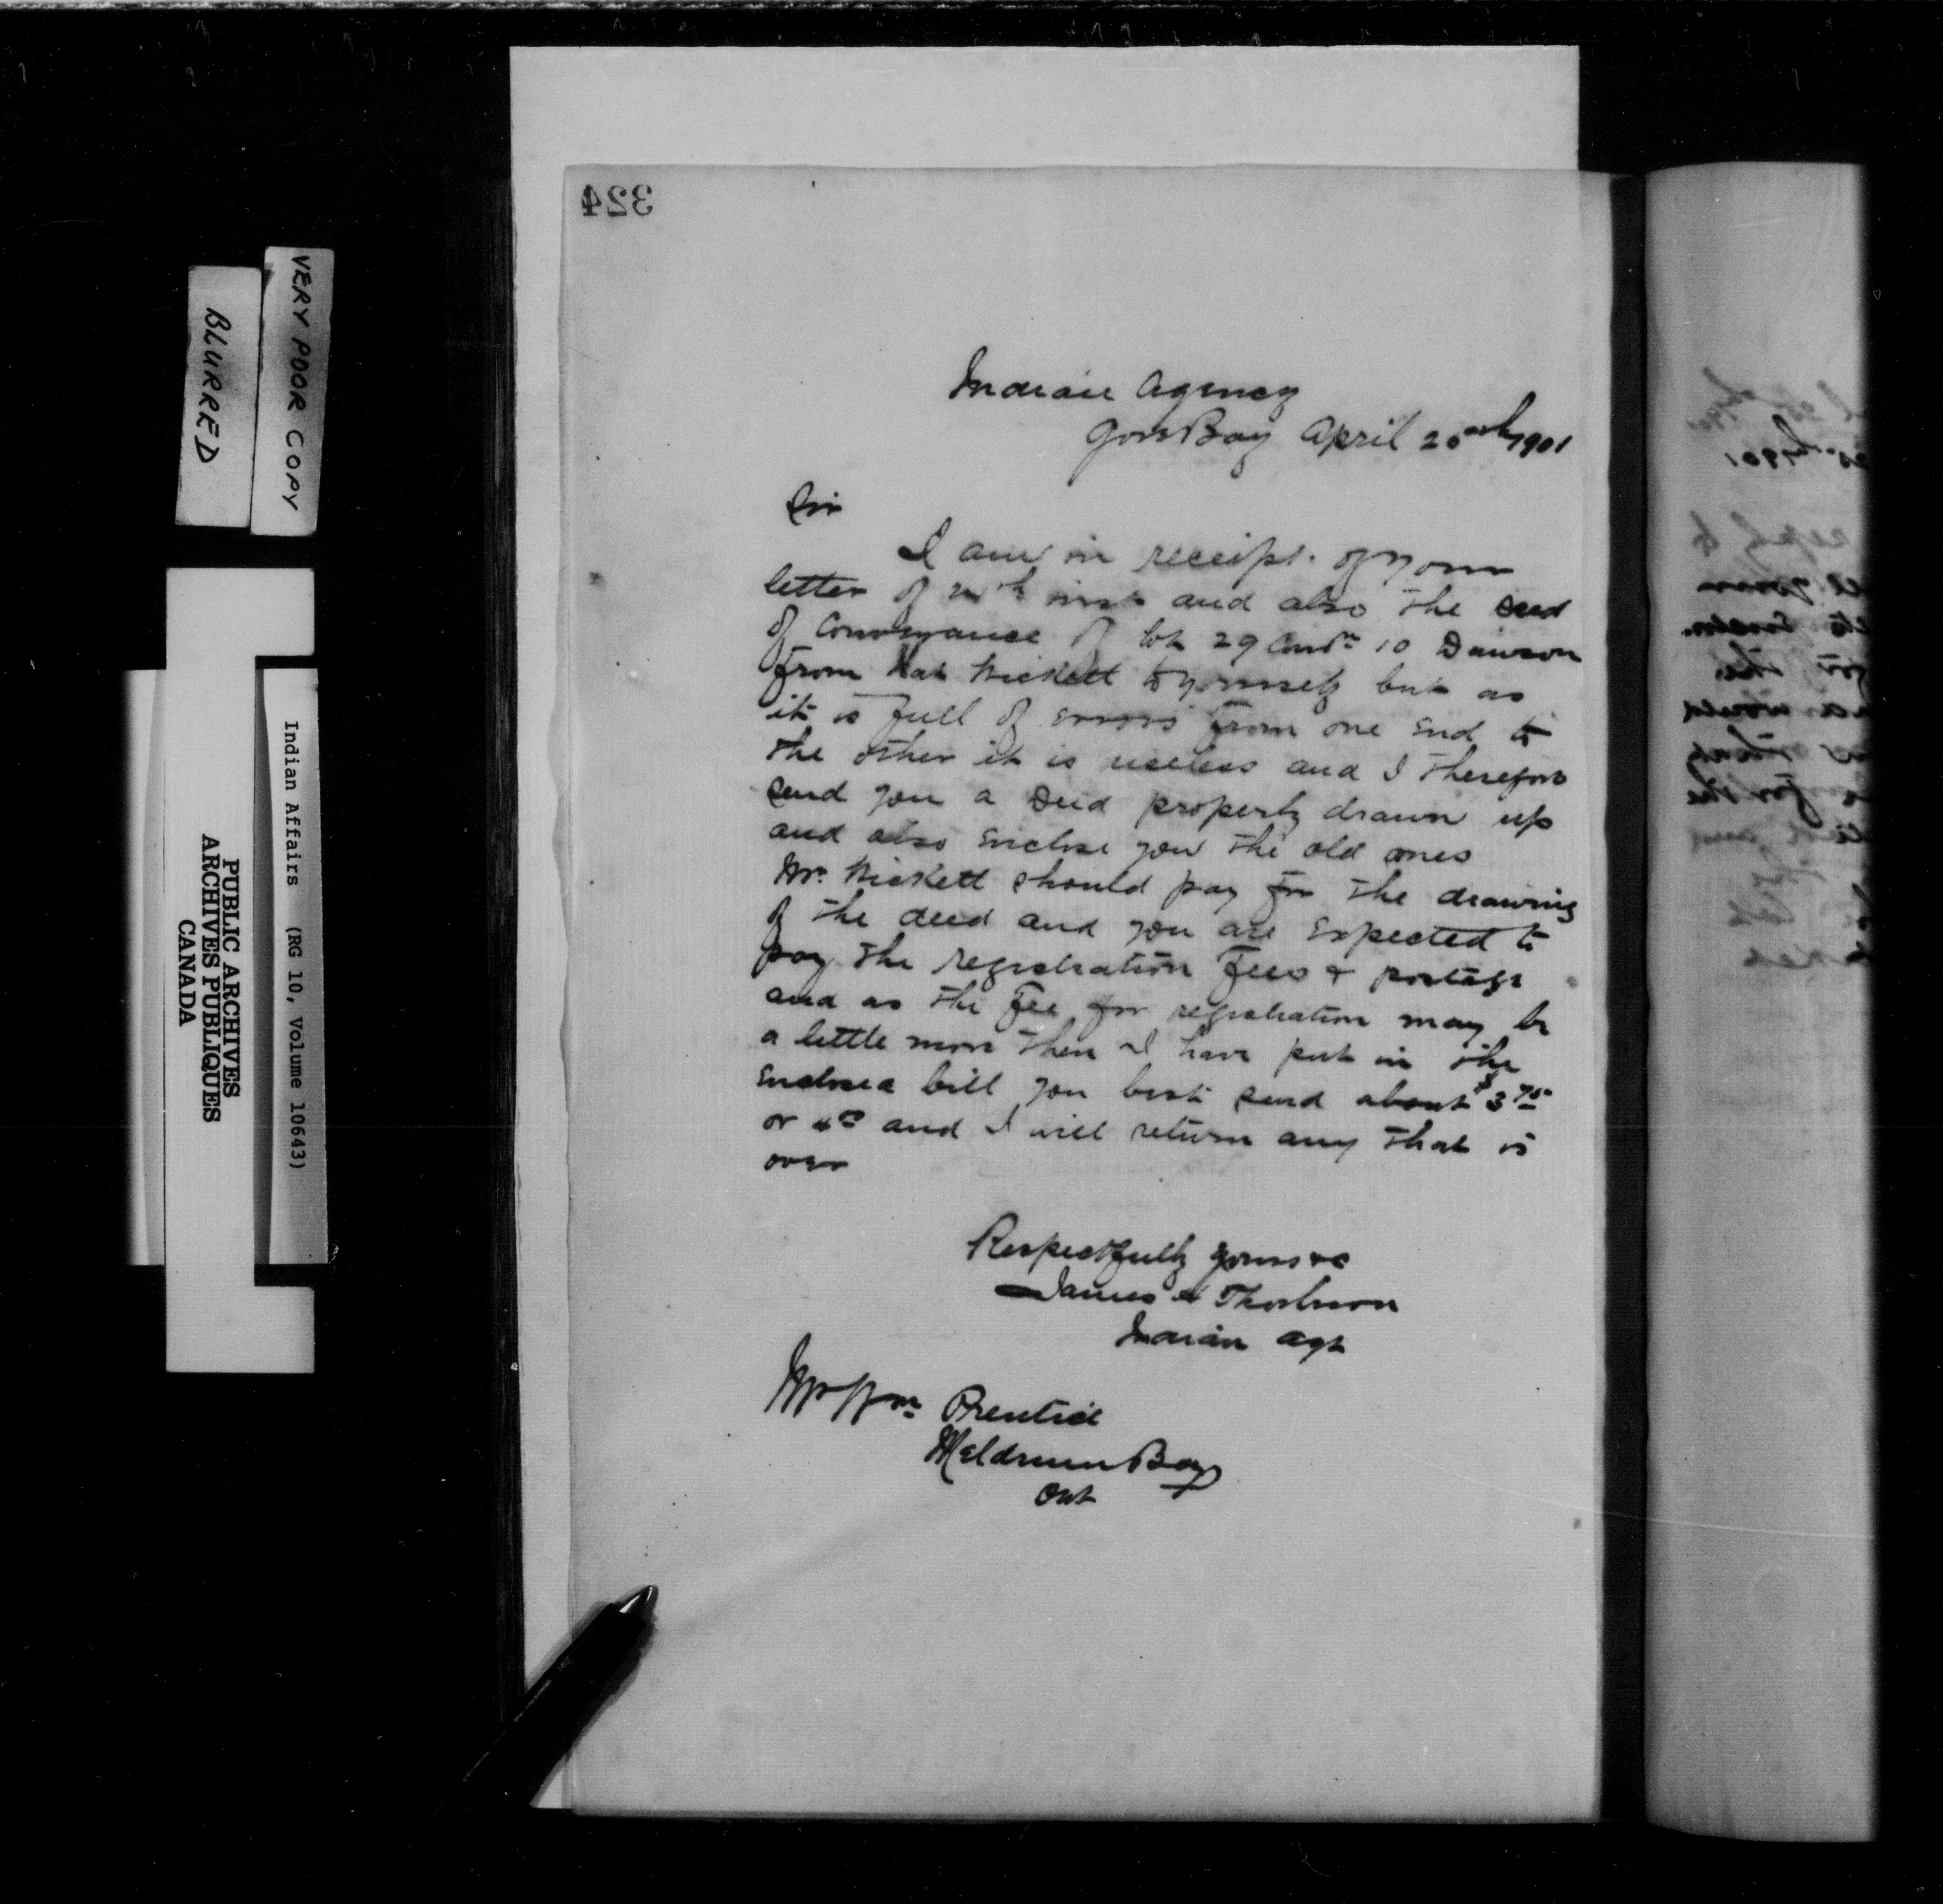 324
VERY POOR COPY
BLURRED
Indian Affairs (RG 10, Volume 10643)
PUBLIC ARCHIVES
ARCHIVES PUBLIQUES
CANADA
Indian Agency
Gore Bay April 20th 1901
Sir
I am in receipt of your
letter of inst and also the Deed
of Conveyance of lot 29 Conc 10 Dawson
from Wickett to yourself but as
it is full of errors from one end to
the other it is useless and I therefore
send you a Deed properly drawn up
and also enclose you the old ones
Mr. Wickett should pay for the drawing
of the deed and you are expected to
pay the registration Fees & postage
and as the Fee for registration may be
a little more then I have put in the
enclosed bill you best send about $3 75
or 4 00 and I will return any that is
over
Respectfully yours &c
James H Thorburn
Indian Agt
Mr Wm Prentice
Meldrum Bay
Ont